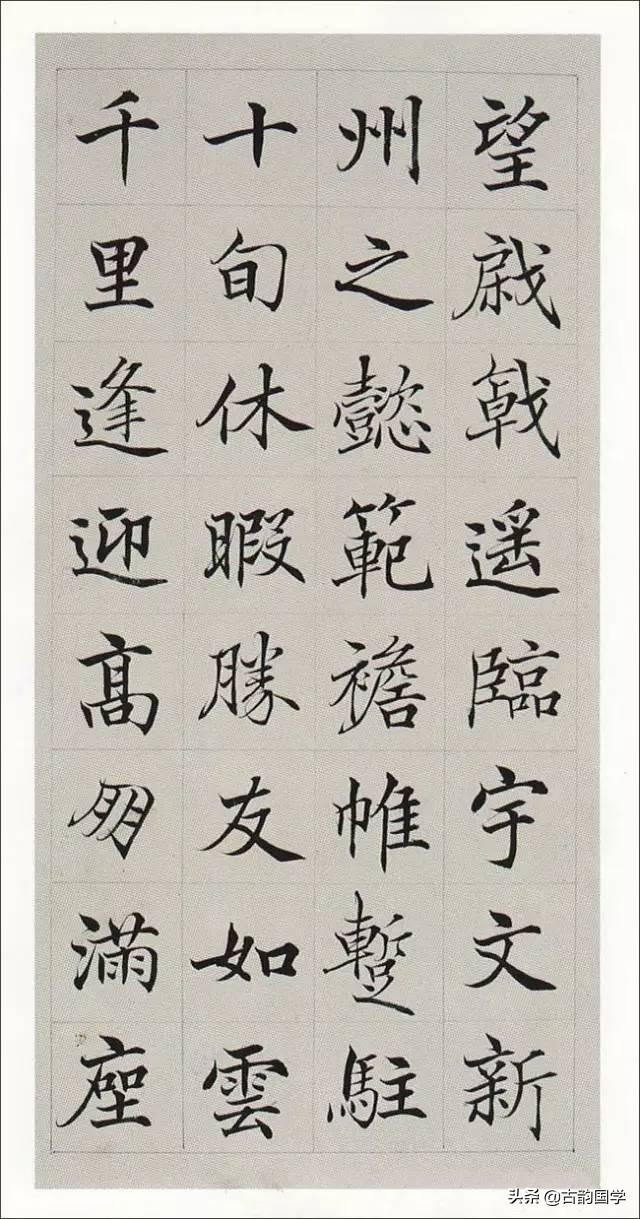 望戚戟遥臨宇文新
州之懿範襜帷蹔駐
十旬休暇勝友如雲
千里逢迎髙朋滿座
头条 @古韵国学